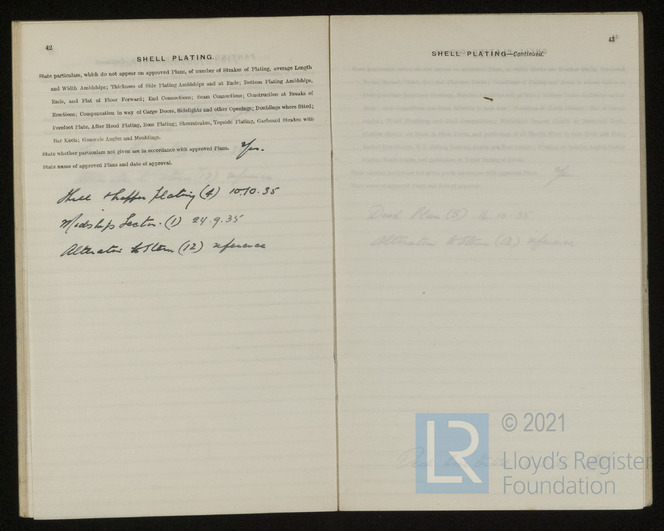 42
SHELL PLATING.
State particulars, which do not appear on approved Plans, of number of Strakes of Plating, average Length
and Width Amidships; Thickness of Side Plating Amidships and at Ends; Bottom Plating Amidships,
Ends, and Flat of Floor Forward; End Connections; Seam Connections; Construction at Breaks of
Erections; Compensation in way of Cargo Doors, Sidelights and other Openings; Doublings where fitted;
Forefoot Plate, After Hood Plating, Boss Plating; Sheerstrakes, Topside Plating, Garboard Strakes with
Bar Keels; Gunwale Angles and Mouldings.
State whether particulars not given are in accordance with approved Plans. Yes.
State name of approved Plans and date of approval.
Shell & hopper plating (4) 10.10.35
Midships Section. (1) 24.9.35
Alteration to Stem (12) reference
43
SHELL PLATING—Continued.
Deck Plan (3) 10.35
Alteration to Stem (12) reference
LR
© 2021
Lloyd's Register
Foundation